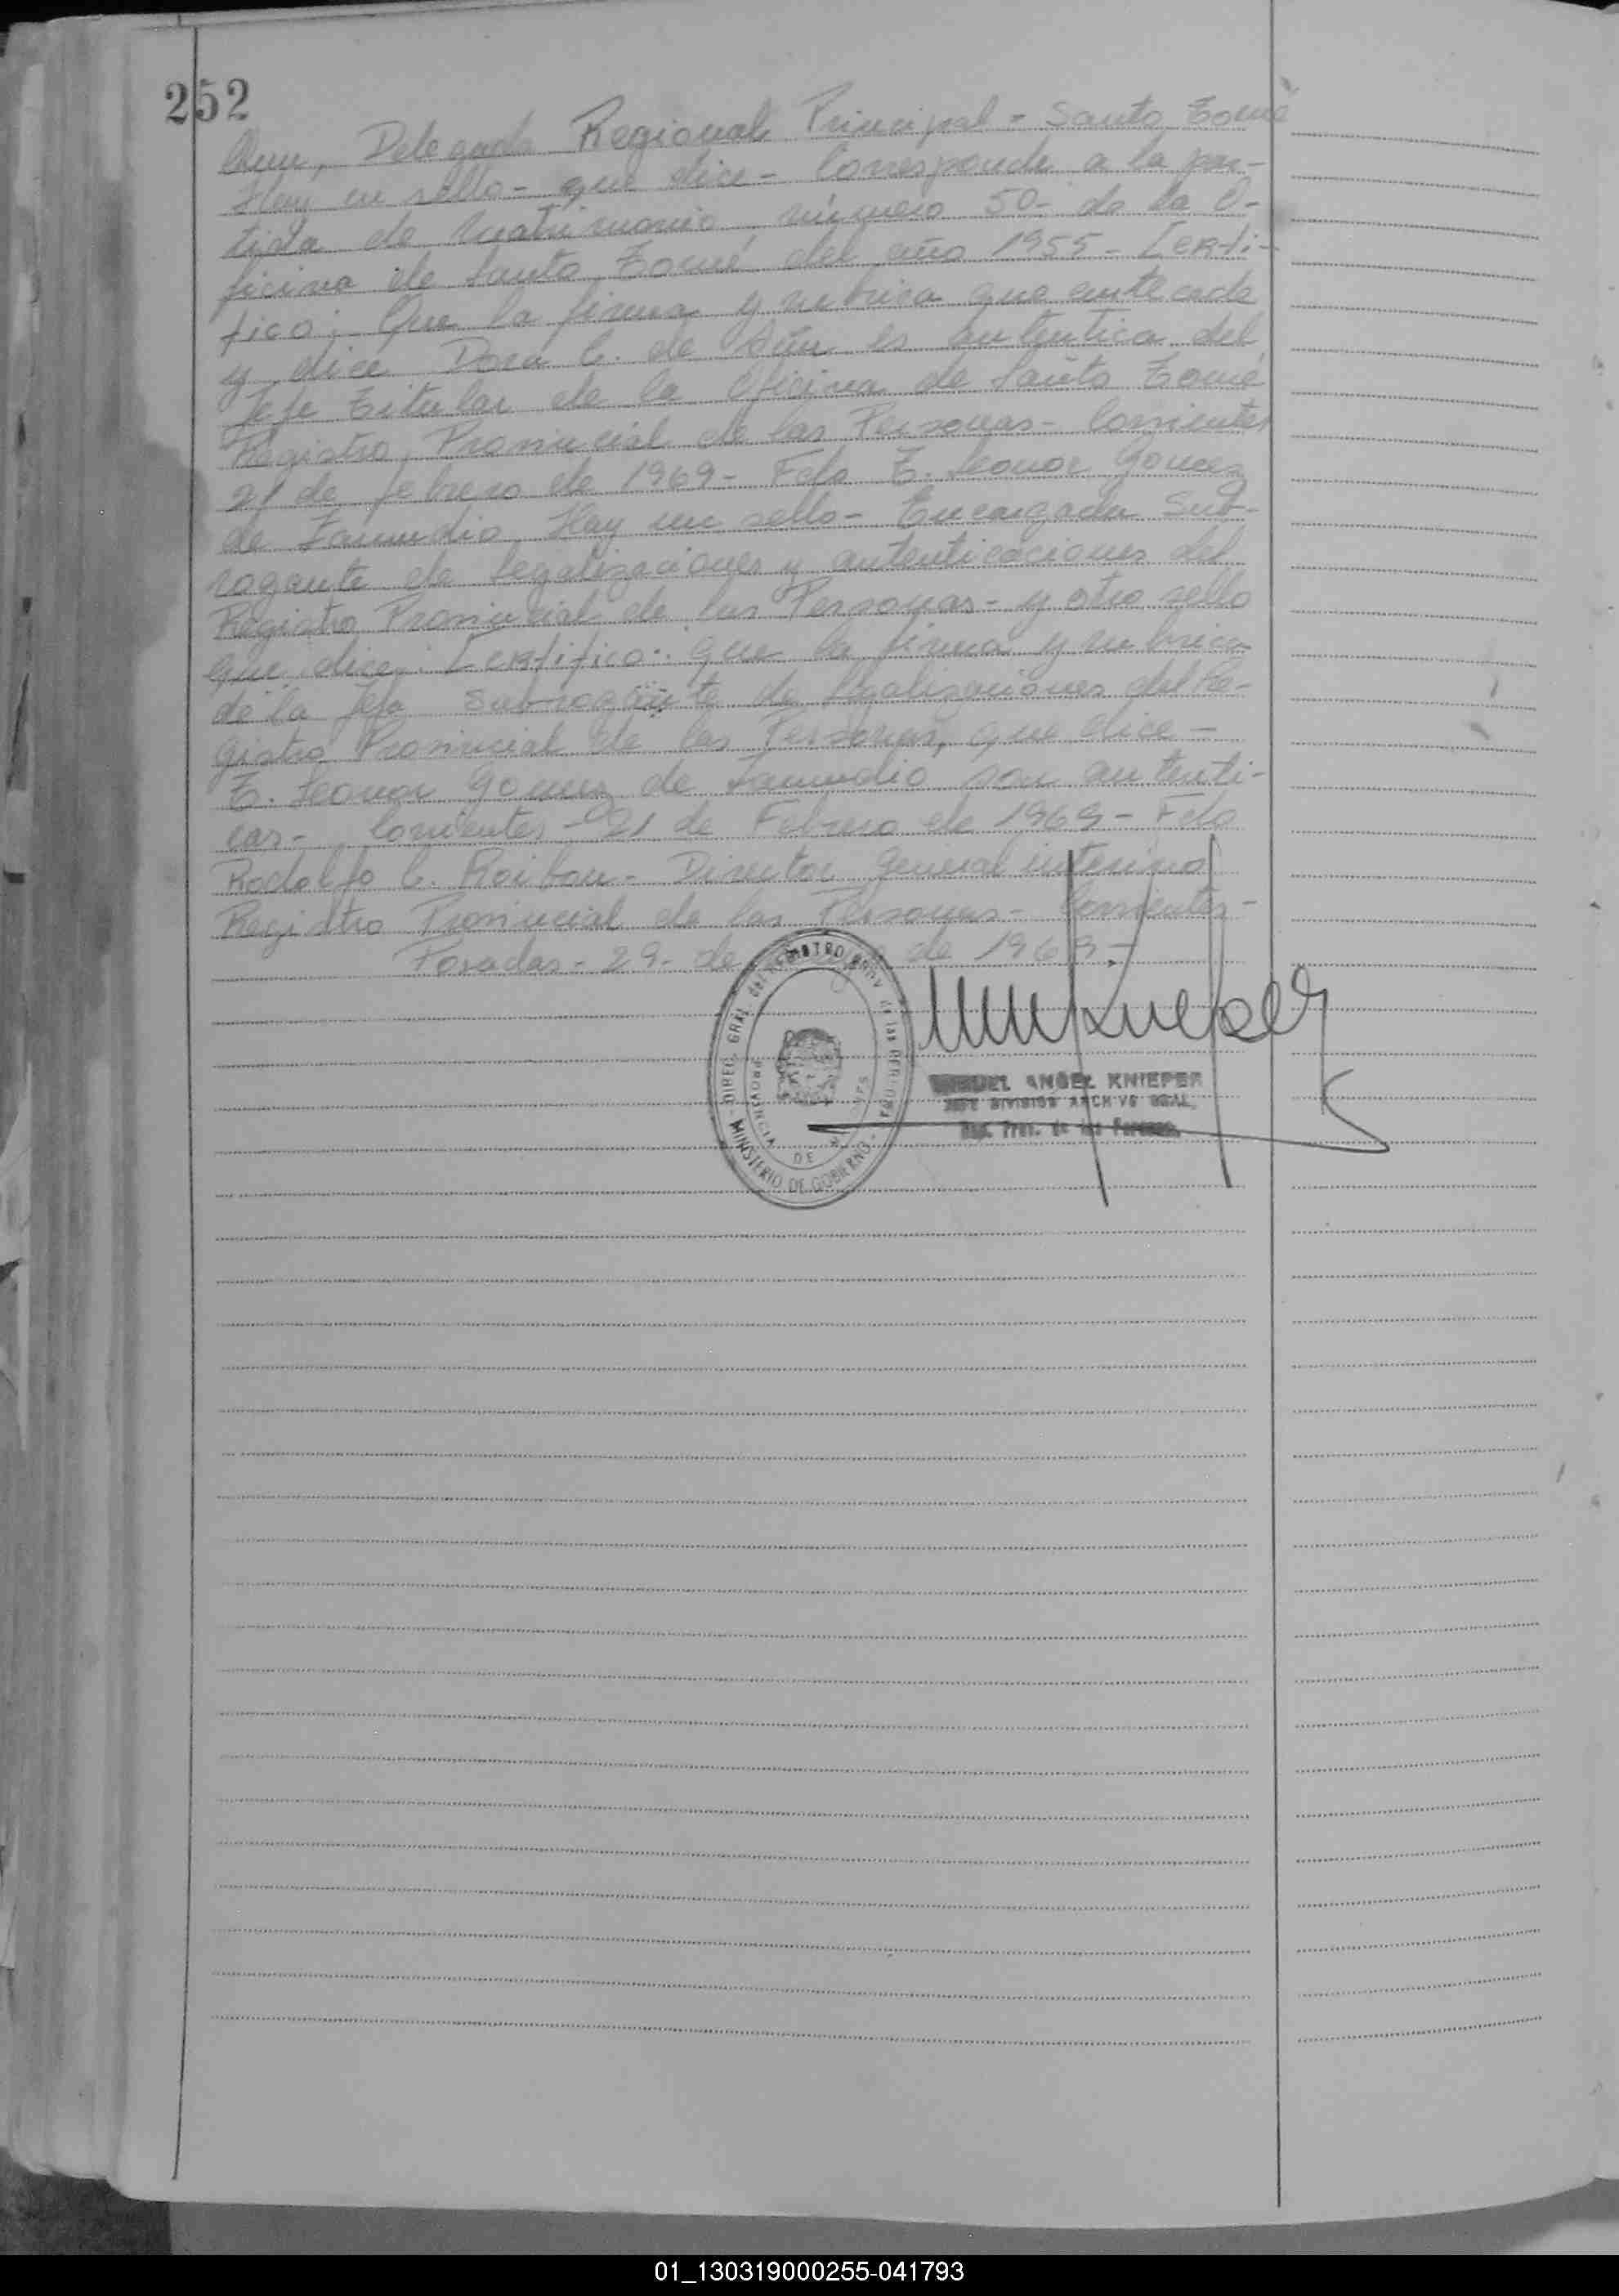 252
Delegada Regional Principal - Santo Tomé
Hay un sello - que dice - Corresponde a la par-
tida de matrimonio número 50 - de la O-
ficina de Santo Tomé del año 1955 - Certi-
fico: Que la firma y rubrica que antecede
y dice Dora C. de es autentica del
Jefe Titular de la Oficina de Santo Tomé
Registro Provincial de las Personas - Corrientes
21 de febrero de 1969 - Fdo T. Leonor Gomez
de Zamudio. Hay un sello - Encargada Sub-
rogante de legalizaciones y autenticaciones del
Registro Provincial de las Personas - y otro sello
que dice: Certifico: que la firma y rubrica
de la Jefa Subrogante de legalizaciones del Re-
gistro Provincial de las Personas, que dice -
T. Leonor Gomez de Zamudio son autenti-
cas - Corrientes - 21 de Febrero de 1969 - Fdo
Rodolfo C. Roibon - Director General interino
Registro Provincial de las Personas - Corrientes -
Posadas - 29 - de de 1969 -
DIREC. GRAL. del REGISTRO PROV. de las PERSONAS
PROVINCIA DE MISIONES
MINISTERIO DE GOBIERNO
MIGUEL ANGEL KNIEPER
JEFE DIVISION ARCHIVO GRAL.
Reg. Prov. de las Personas
01_130319000255-041793